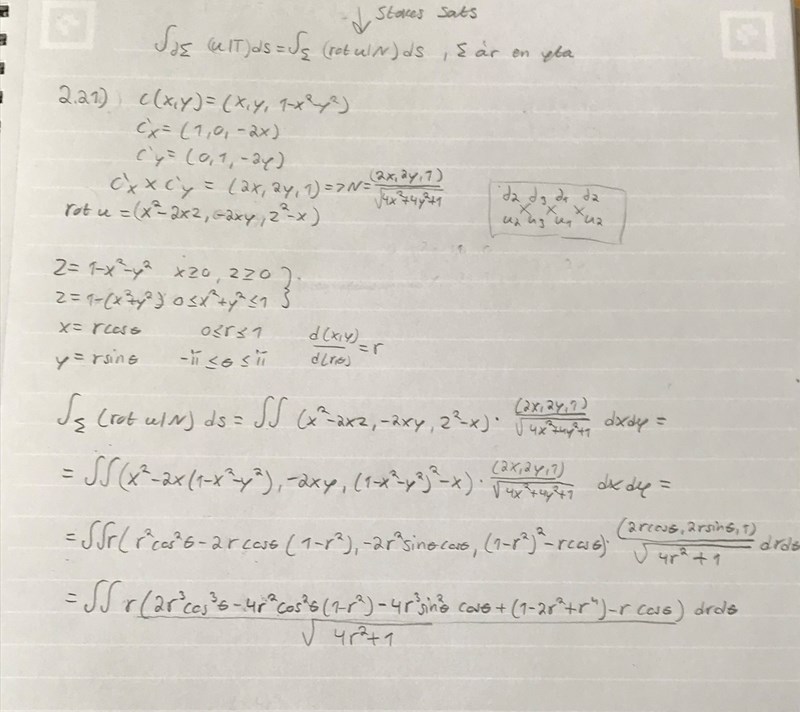 ↓ Stokes Sats
∫∂Σ (u|T) ds = ∫Σ (rot u|N) ds , Σ är en yta
2.21) c(x,y) = (x,y, 1-x²-y²)
c'x = (1,0,-2x)
c'y = (0,1,-2y)
c'x × c'y = (2x, 2y, 1) => N = (2x,2y,1)/√4x²+4y²+1
rot u = (x²-2xz, -2xy, z²-x)
d2 d3 d1 d2
× × ×
u2 u3 u1 u2
z = 1-x²-y² x≥0, z≥0 }
z = 1-(x²+y²) 0≤x²+y²≤1 }
x = rcosθ 0≤r≤1 d(x,y)/d(r,θ) = r
y = rsinθ -π≤θ≤π
∫Σ (rot u|N) ds = ∫∫ (x²-2xz, -2xy, z²-x) · (2x,2y,1)/√4x²+4y²+1 dxdy =
= ∫∫(x²-2x(1-x²-y²), -2xy, (1-x²-y²)²-x) · (2x,2y,1)/√4x²+4y²+1 dxdy =
= ∫∫r(r²cos²θ-2rcosθ(1-r²), -2r²sinθcosθ, (1-r²)²-rcosθ) · (2rcosθ, 2rsinθ, 1)/√4r²+1 drdθ
= ∫∫ r(2r³cos³θ-4r²cos²θ(1-r²)-4r³sin²θ cosθ+(1-2r²+r⁴)-r cosθ)/√4r²+1 drdθ